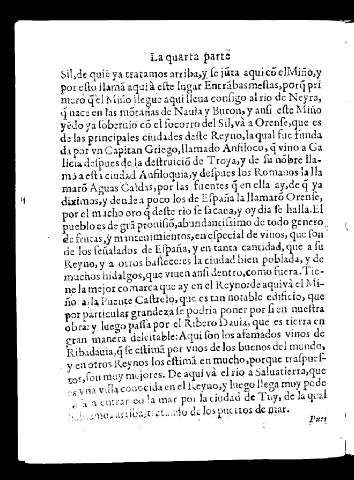 La quarta parte
Sil, de quiē ya tratamos arriba, y se jūta aqui cō el Miño, y
por esto llamā aqui à este lugar Entrābas mestas, porq̃ pri
mero q̃ el Miño llegue aqui lleua consigo al rio de Neyra,
q̃ nace en las mōtañas de Nauia y Buron, y ansi este Miño
yēdo ya soberuio cō el socorro del Sil, và a Orense, que es
de las principales ciudades deste Reyno, la qual fue funda
da por vn Capitan Griego, llamado Anfiloco, q̃ vino a Ga
licia despues de la destruiciō de Troya, y de su nōbre lla-
mò a esta ciudad Anfiloquia, y despues los Romanos la lla
marō Aguas Caldas, por las fuentes q̃ en ella ay, de q̃ ya
diximos, y dende a poco los de España la llamarō Orense,
por el mucho oro q̃ deste rio se sacaua, y oy dia se halla. El
pueblo es de grā prouisiō, abundantissimo de todo genero
de frutas, y mantenimientos, en especial de vinos, que son
de los señalados de España, y en tanta cantidad, que a su
Reyno, y a otros bastecer es la ciudad bien poblada, y de
muchos hidalgos, que viuen ansi dentro, como fuera. Tie-
ne la mejor comarca que ay en el Reyno: de aqui và el Mi-
ño a la Puente Castrelo, que es tan notable edificio, que
por particular grandeza se podria poner por si en nuestra
obra: y luego passa por el Ribero Dauia, que es tierra en
gran manera deleitable: Aqui son los afamados vinos de
Ribadauia, q̃ se estimā por vinos de los buenos del mundo,
y en otros Reynos los estimā en mucho, porque traspues-
tos, son muy mejores. De aqui và el rio a Saluatierra, que
es vna villa conocida en el Reyno, y luego llega muy pode
a entrar en la mar por la ciudad de Tuy, de la qual
arriba, tratando de los puertos de mar.